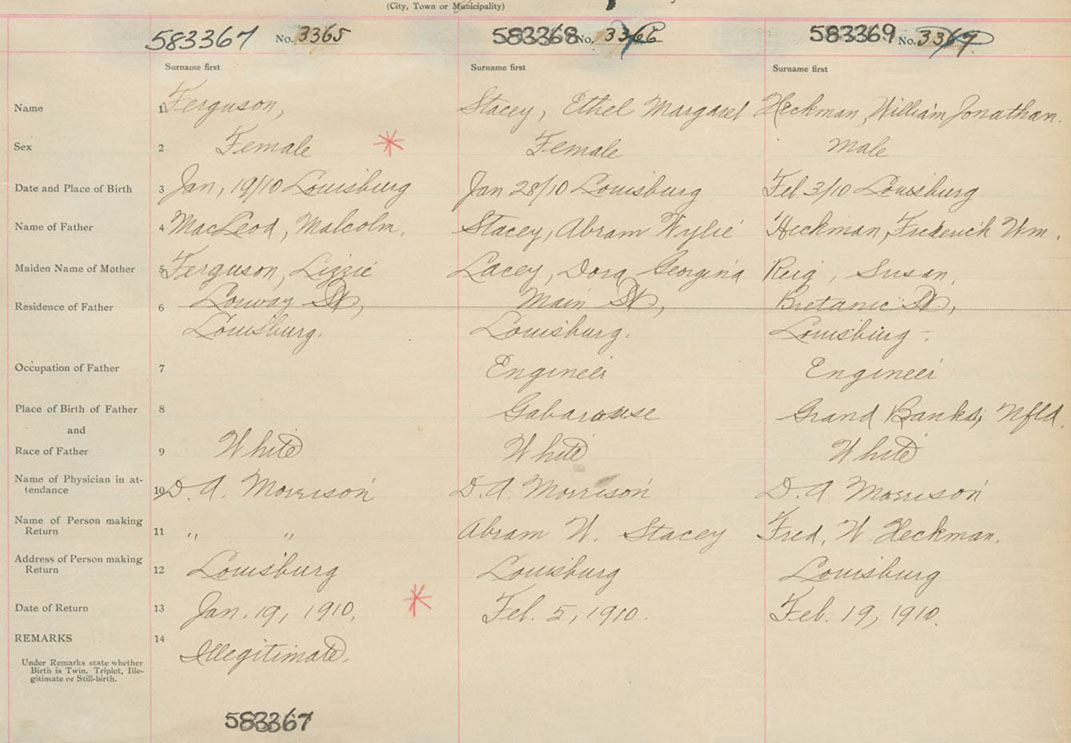 (City, Town or Municipality)
583367 No. 3365 583368 No. 3366 583369 No. 3367
Surname first Surname first Surname first
Name 1 Ferguson, Stacey, Ethel Margaret Heckman, William Jonathan.
Sex 2 Female Female Male
Date and Place of Birth 3 Jan, 19/10 Louisburg Jan 28/10 Louisburg Feb 3/10 Louisburg
Name of Father 4 MacLeod, Malcolm. Stacey, Abram Wylie Heckman, Frederick Wm.
Maiden Name of Mother 5 Ferguson, Lizzie Lacey, Dora Georgina Susan,
Residence of Father 6 St, Main St, St,
Louisburg. Louisburg. Louisburg.
Occupation of Father 7 Engineer Engineer
Place of Birth of Father 8 Gabarouse Grand Banks, Nfld.
and
Race of Father 9 White White White
Name of Physician in at-
tendance 10 D. A. Morrison D. A. Morrison D. A. Morrison
Name of Person making
Return 11 " " Abram W. Stacey Fred. W Heckman.
Address of Person making
Return 12 Louisburg Louisburg Louisburg
Date of Return 13 Jan. 19, 1910. Feb. 5, 1910. Feb. 19, 1910.
REMARKS 14 Illegitimate.
Under Remarks state whether
Birth is Twin, Triplet, Ille-
gitimate or Still-birth.
583367